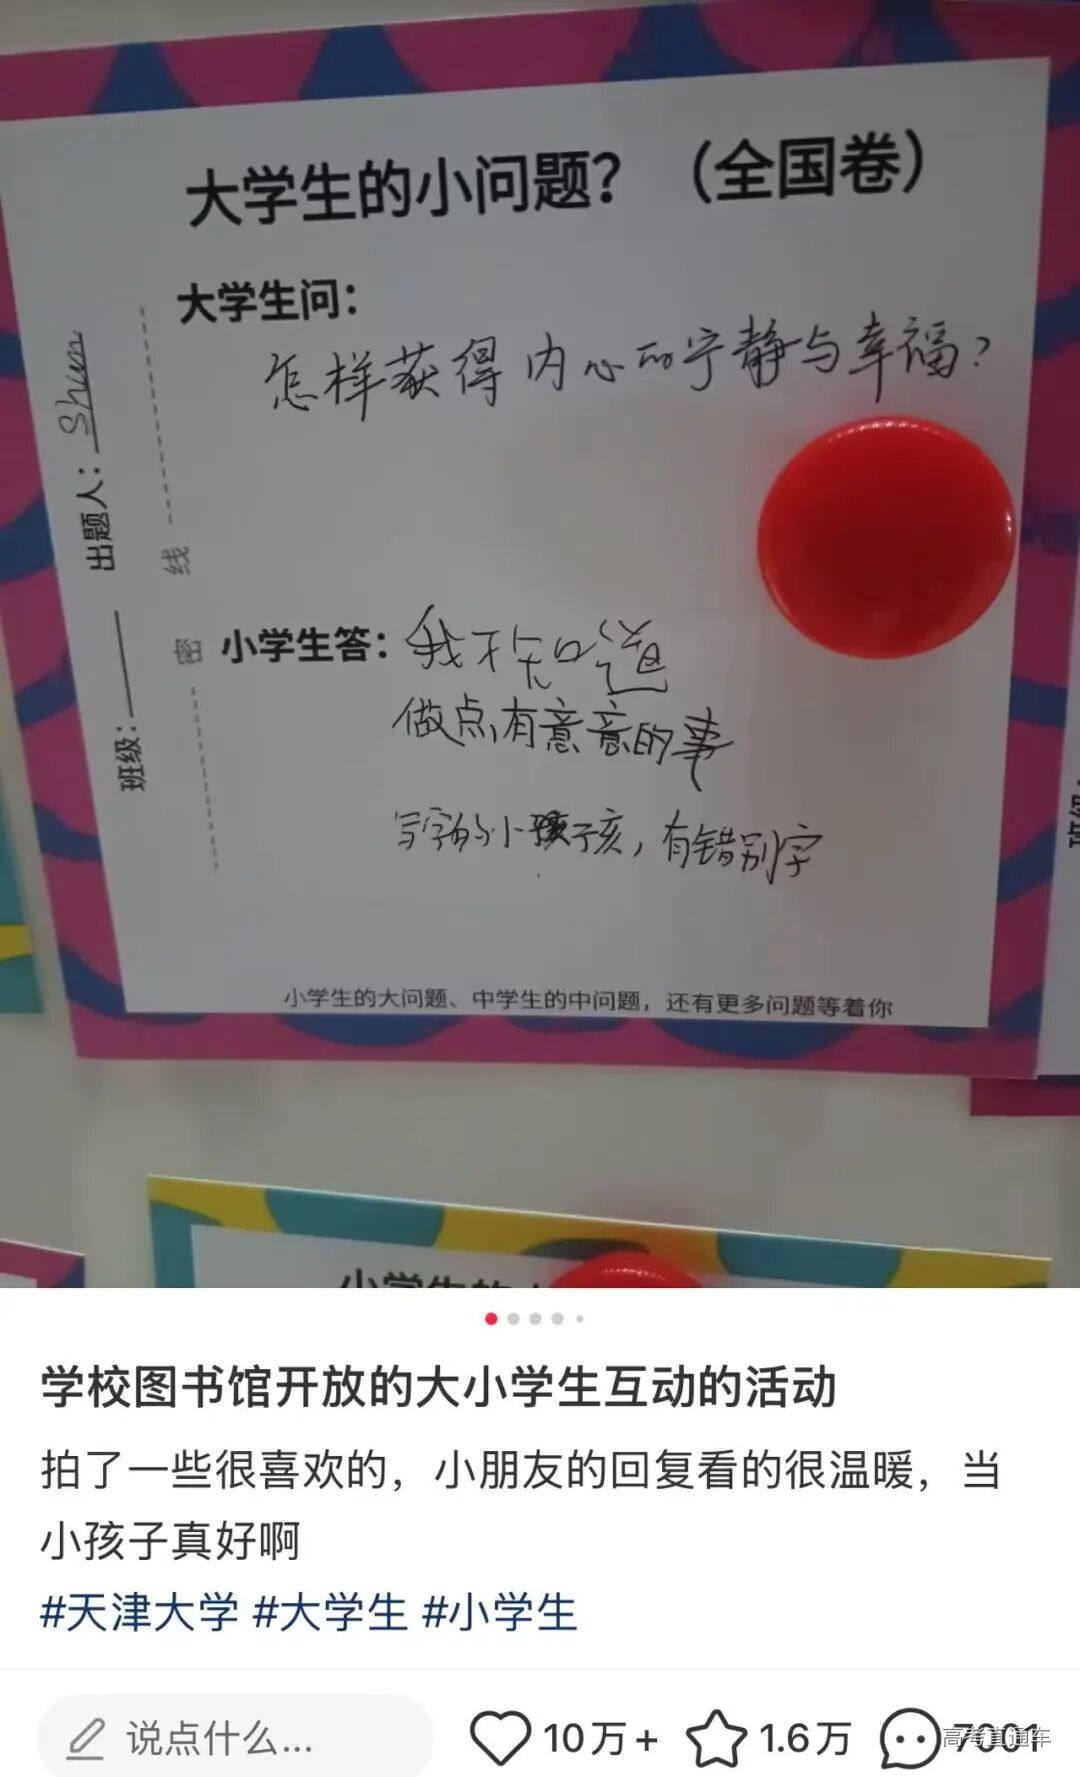 大学生的小问题？（全国卷）
大学生问：
怎样获得内心的宁静与幸福？
出题人：Shun
班级：
密 线
小学生答：我不知道
做点有意意的事
写字的小孩子孩，有错别字
小学生的大问题、中学生的中问题，还有更多问题等着你
学校图书馆开放的大小学生互动的活动
拍了一些很喜欢的，小朋友的回复看的很温暖，当
小孩子真好啊
#天津大学 #大学生 #小学生
说点什么...
10万+
1.6万
7001
高考直通车